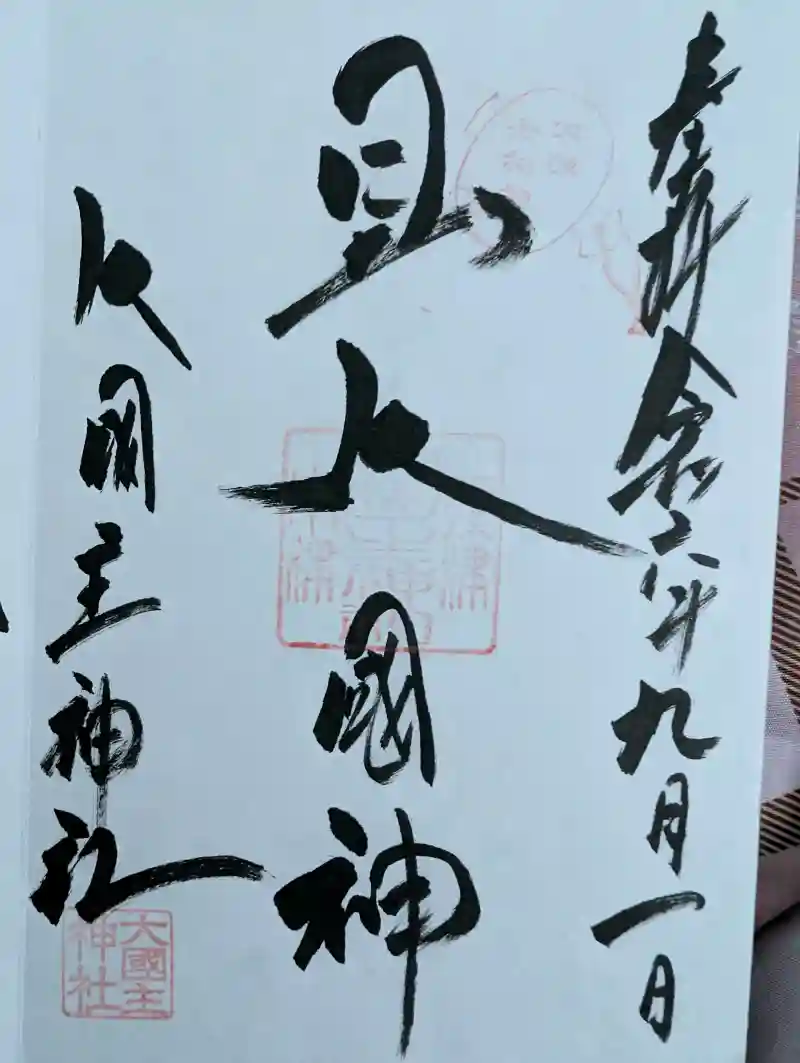 奉拝 令和六年九月一日
日出大國神
大国主神社
大國主
神社